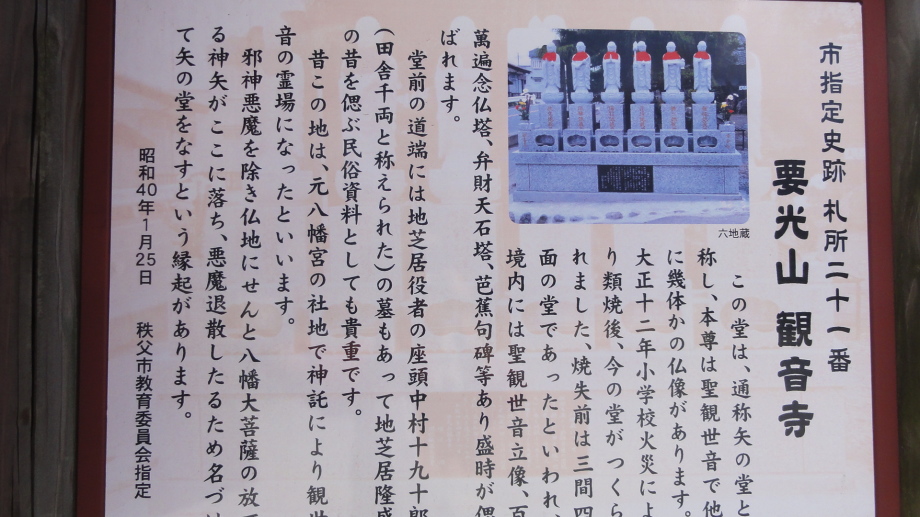 市指定史跡 札所二十一番
要光山 観音寺
この堂は、通称矢の堂と
称し、本尊は聖観世音で他
に幾体かの仏像があります。
大正十二年小学校火災によ
り類焼後、今の堂がつくら
れました、焼失前は三間四
面の堂であったといわれ、
境内には聖観世音立像、百
萬遍念仏塔、弁財天石塔、芭蕉句碑等あり盛時が偲
ばれます。
堂前の道端には地芝居役者の座頭中村十九十郎
(田舎千両と称えられた)の墓もあって地芝居隆盛
の昔を偲ぶ民俗資料としても貴重です。
昔この地は、元八幡宮の社地で神託により観世
音の霊場になったといいます。
邪神悪魔を除き仏地にせんと八幡大菩薩の放て
る神矢がここに落ち、悪魔退散したるため名づけ
て矢の堂をなすという縁起があります。
昭和40年1月25日 秩父市教育委員会指定
六地蔵